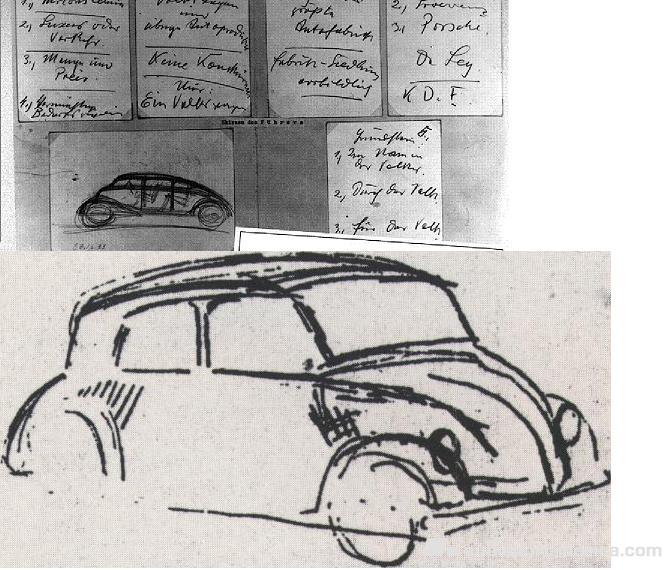 2, Luxus oder
Verkehr.
3, Menge und
Preis
Volkswagen
und
übrige Autoproduktion
Keine Konkurrenz
Hier:
Ein Volkswagen
größte
Autofabrik
Fabrik-Siedlung
vorbildlich
3, Porsche.
Dr Ley
K.D.F.
Skizzen des Führers
Grundstein
1, Im Namen
des Volkes.
2, Durch das Volk
3, für das Volk